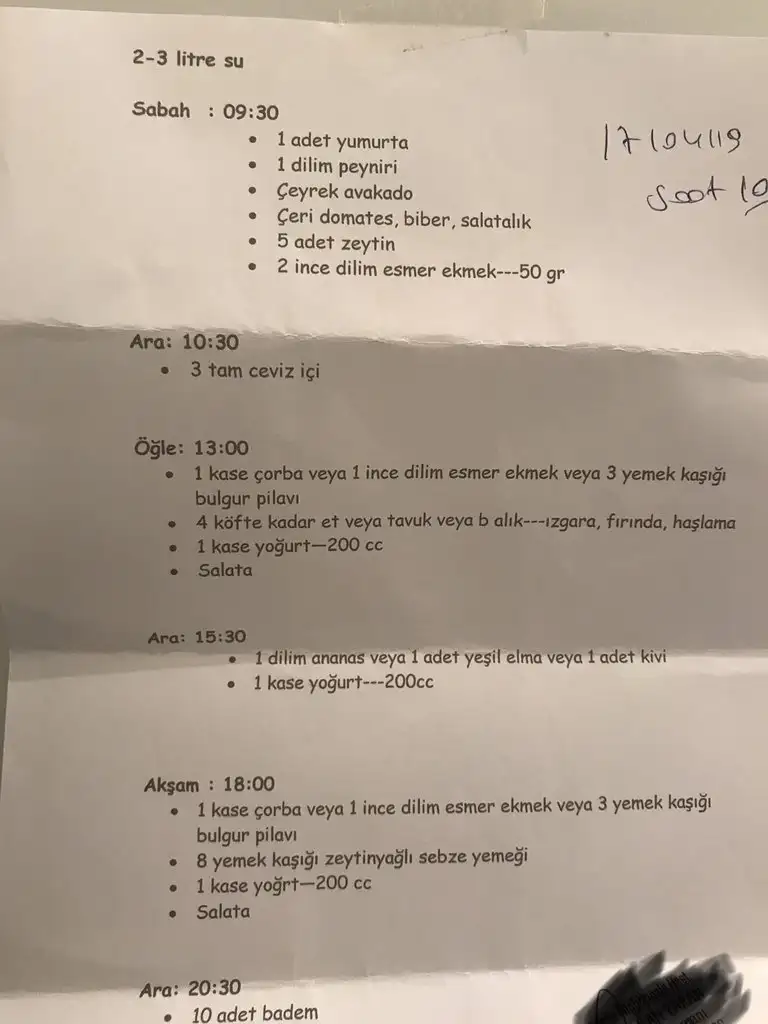 2-3 litre su
Sabah : 09:30
17/04/19
saat 10
• 1 adet yumurta
• 1 dilim peyniri
• Çeyrek avakado
• Çeri domates, biber, salatalık
• 5 adet zeytin
• 2 ince dilim esmer ekmek---50 gr
Ara: 10:30
• 3 tam ceviz içi
Öğle: 13:00
• 1 kase çorba veya 1 ince dilim esmer ekmek veya 3 yemek kaşığı
bulgur pilavı
• 4 köfte kadar et veya tavuk veya b alık---ızgara, fırında, haşlama
• 1 kase yoğurt—200 cc
• Salata
Ara: 15:30
• 1 dilim ananas veya 1 adet yeşil elma veya 1 adet kivi
• 1 kase yoğurt---200cc
Akşam : 18:00
• 1 kase çorba veya 1 ince dilim esmer ekmek veya 3 yemek kaşığı
bulgur pilavı
• 8 yemek kaşığı zeytinyağlı sebze yemeği
• 1 kase yoğrt—200 cc
• Salata
Ara: 20:30
• 10 adet badem